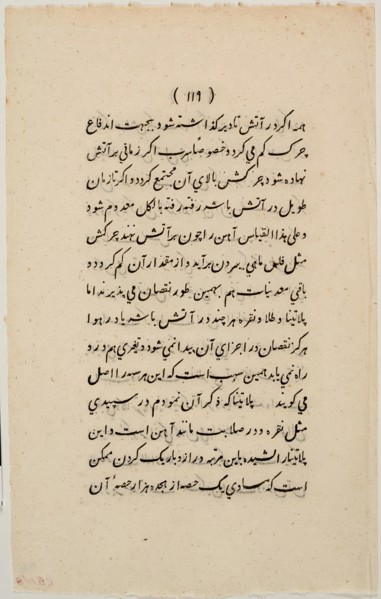 ( ١١٩ )
همه اگر در آتش تا دیر گذاشته شود بجهت اندفاع
چرک کم می گردد خصوصا سرب اگر زمانی بر آتش
نهاده شود چرکش بالای آن مجتمع گردد و اگر تا زمان
طویل در آتش باشد رفته رفته بالکل معدوم شود
و علی هذا القیاس آهن را چون بر آتش نهند چرکش
مثل فلوس ماهی بیرون برآید و از مقدار آن کم گردد و
باقی معدنیات هم بهمین طور نقصان می پذیرند اما
پلاتینا و طلا و نقره هر چند در آتش باشد یا در هوا
هرگز نقصان در اجزای آن پیدا نمی شود و تغیری هم درو
راه نمی یابد همین سبب است که این هر سه را اصل
می گویند پلاتینا که ذکر آن نمودم در سپیدی
مثل نقره و در صلابت مانند آهن است و این
پلاتینا را کشیده باین مرتبه دراز و باریک کردن ممکن
است که مساوی یک حصه از هجده هزار حصهٔ آن